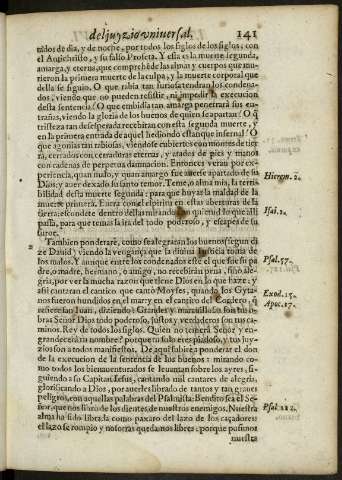 del juyzio vniuersal. 141
tablos de dia, y de noche, por todos los siglos de los siglos, con
el Antichristo, y su falso Profeta. Y esta es la muerte segunda,
amarga, y eterna, que comprehẽde las almas y cuerpos que mu-
rieron la primera muerte de la culpa, y la muerte corporal que
della se siguio. O que rabia tan furiosa tendran los condena-
dos, viendo que no pueden resistir, ni impedir la execucion
desta sentencia! O que embidia tan amarga penetrarà sus en-
trañas, viendo la gloria de los buenos de quien se apartan! O q̃
tristeza tan desesperada recebiran con esta segunda muerte, y
en la primera entrada de aquel hediondo estanque infernal! O
que agonias tan rabiosas, viendose cubiertos con montes de tier
ra, cerrados con cerraduras eternas, y atados de pies y manos
con cadenas de perpetua damnacion. Entonces veran por ex-
periencia, quan malo, y quan amargo fue auerse apartado de su
Dios, y auer dexado su santo temor. Teme, o alma mia, la terri-
bilidad desta muerte segunda: para que huyas la maldad de la
muerte primera. Entra con el espiritu en estas aberturas de la
tierra, escondete dentro della mirando lo que allí
passa, para que temas la ira del todo poderoso, y escapes de su
furor.
Tambien ponderarè, como se alegraran los buenos (segun di
ze Dauid) viendo la vengança que la diuina justicia toma de
los malos. Y aunque entre los condenados estè el que fue su pa
dre, o madre, hermano, o amigo, no recebiràn pena, sino ale-
gria, por ver la mucha razon que tiene Dios en lo que haze: y
assi cantaran el cantico que cantò Moyses, quando los Gyta-
nos fueron hundidos en el mar: y en el cantico del Cordero, q̃
refiere san Iuan, diziendo: Grandes y marauillosas son tus o-
bras Señor Dios todo poderoso, justos y verdaderos son tus ca-
minos. Rey de todos los siglos. Quien no temerà Señor y en-
grandecerà tu nombre? porque tu solo eres piadoso, y tus juy-
zios son a todos manifiestos. De aqui subirè a ponderar el don
de la execucion de la sentencia de los buenos: mirando co-
mo todos los bienauenturados se leuantan sobre los ayres, si-
guiendo a su Capitan Iesus, cantando mil cantares de alegria,
glorificando a Dios, por auerles librado de tantos y tan graues
peligros, con aquellas palabras del Psalmista: Bendito sea el Se-
ñor, que nos librò de los dientes de nuestros enemigos. Nuestra
alma ha sido libra. la como paxaro del lazo de los caçadores:
el lazo se rompio y nosotras quedamos libres: porque pusimos
nuestra
Hieron. 2.
Isai. 2.
Psal. 57.
Exod. 15.
Apoc. 17.
Psal 123.